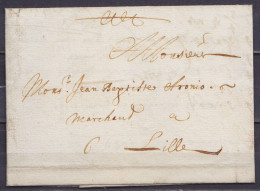 A Monsieur
Mons.r Jean Baptiste
marchand
Lille